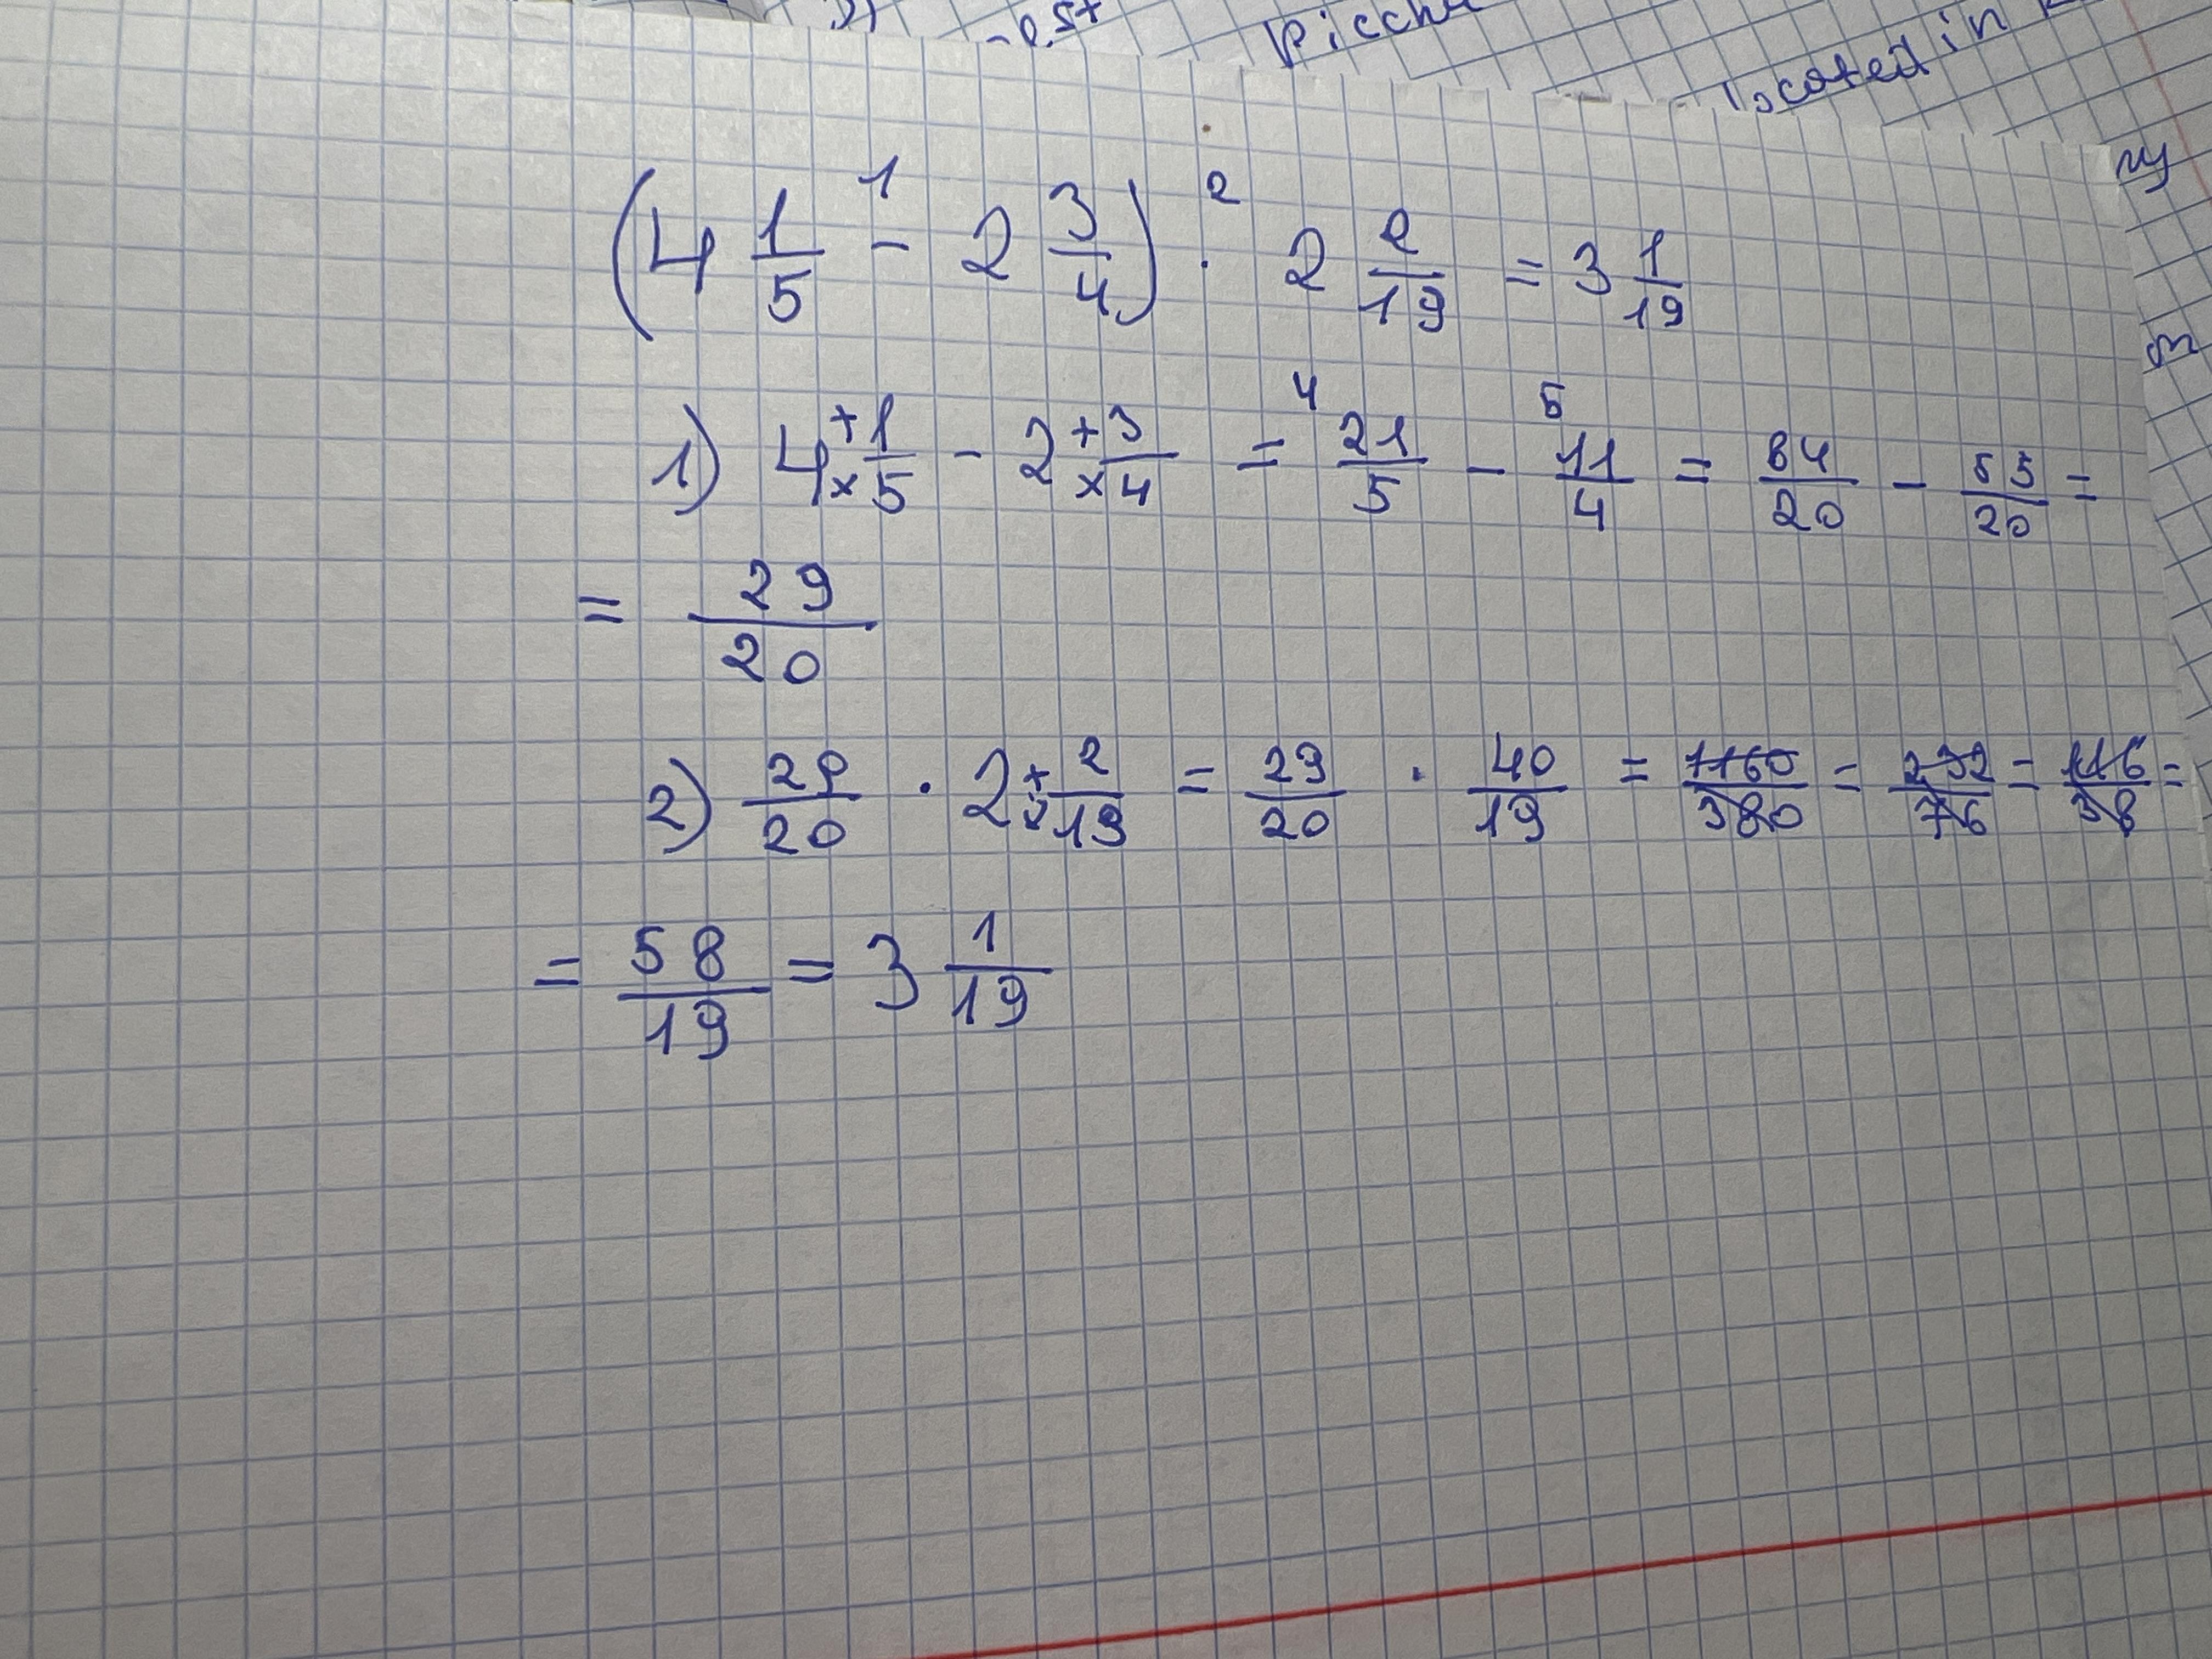 -0,5+
Picchu
located in
(4 1/5 - 2 3/4) · 2 2/19 = 3 1/19
1 2
1) 4 + 1 / × 5 - 2 + 3 / × 4 = 4 21/5 - 5 11/4 = 84/20 - 55/20 =
= 29/20
2) 29/20 · 2 + 2 / × 19 = 29/20 · 40/19 = 1160/380 = 232/76 = 116/38 =
= 58/19 = 3 1/19